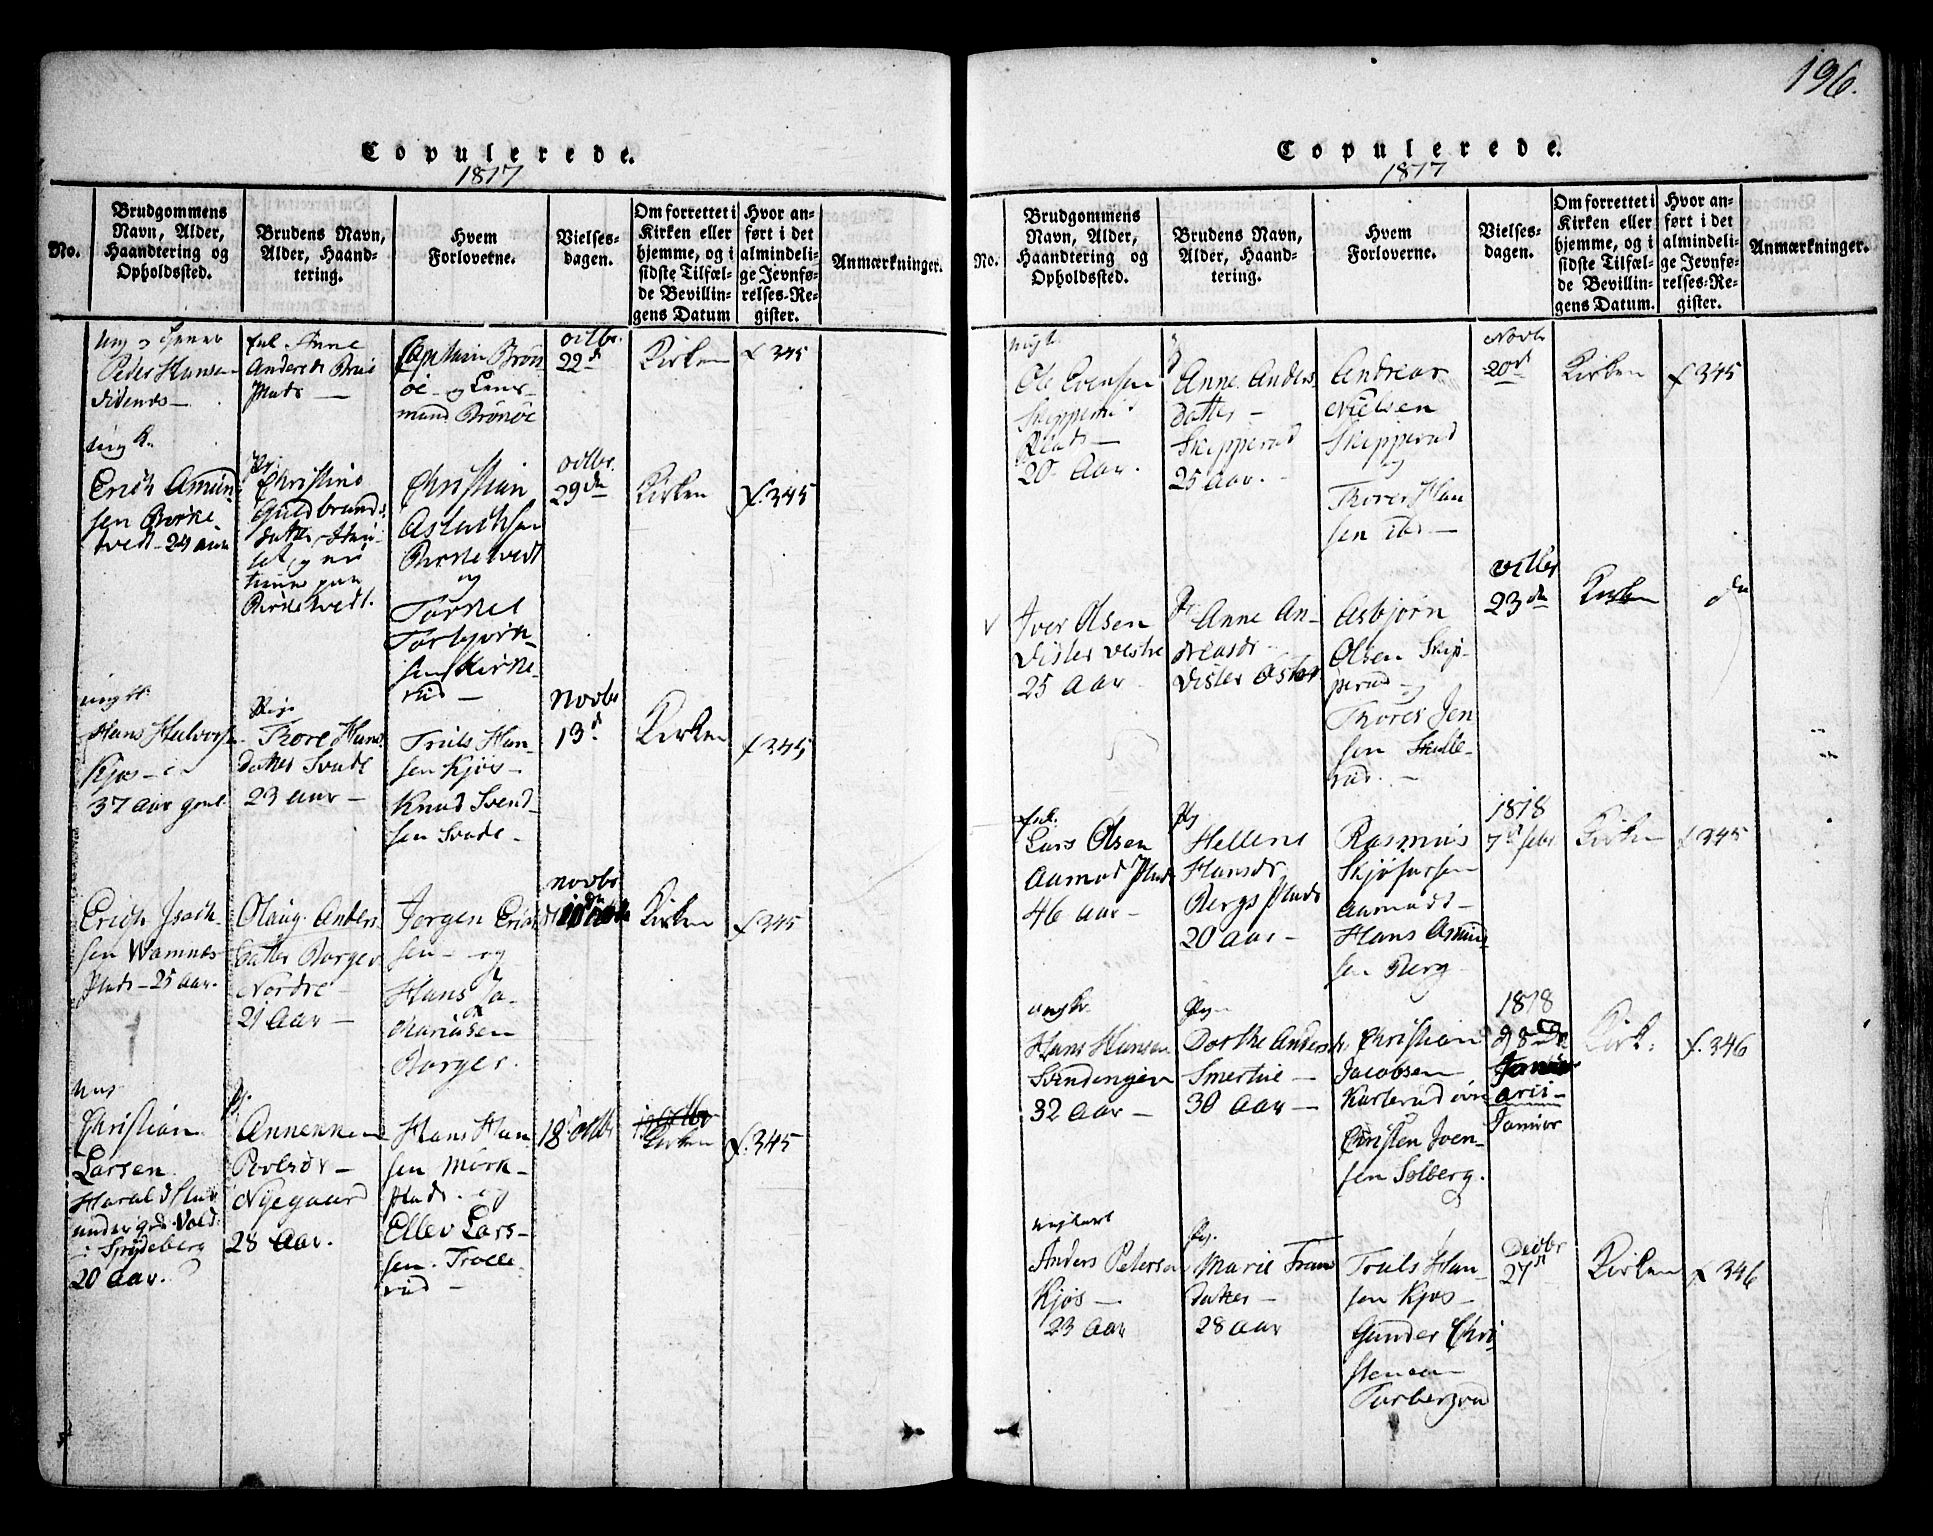 196.
Copulerede.
1817
No.
Brudgommens Navn, Alder, Haandtering og Opholdssted.
Brudens Navn, Alder, Haandtering.
Hvem Forloverne.
Vielsesdagen.
Om forrettet i Kirken eller hjemme, og i sidste Tilfælde Bevillingens Datum
Hvor anført i det almindelige Jevnførelses-Register.
Anmærkninger.
Peder Hansen
Anne
Captain Brönöe og Lensmand Brönöe
octbr. 22d
Kirken
f. 345
ungk.
Erich Amundsen Birketvedt 24 aar
Pr. Christine Guldbrandsdatter
Birketvedt.
Christian Aslachsen Birketvedt
og
Torkel Torbjörnsen Kirkerud
octbr. 29de
Kirken
f. 345
Hans Halvorsen
Kjos
37 aar gml
Pige
Thore Hansdatter Svade
23 aar
Truls Hansen Kjös
Knud Svendsen Svade
Novbr 13d
Kirken
f. 345
Erich Isachsen Wamnes
Plads 25 aar.
Olaug Andersdatter Borger Nordre
21 Aar
Jorgen Erichsen og
Hans Zachariasen
Borger.
novbr
Kirken
f. 345
Christian Larsen
under
i Spydeberg
20 Aar.
Pg.
Annekken
Nyegaard
28 Aar.
Hans Hansen Mörk
Plads og
Ellev Larssen Trollerud
18 octbr
Kirken
f. 345
Copulerede.
1817
No.
Brudgommens Navn, Alder, Haandtering og Opholdssted.
Brudens Navn, Alder, Haandtering.
Hvem Forloverne.
Vielsesdagen.
Om forrettet i Kirken eller hjemme, og i sidste Tilfælde Bevillingens Datum.
Hvor anført i det almindelige Jevnførelses-Register.
Anmærkninger.
Ole Evensen
20 Aar.
Anne Andersdatter
Skipperud
25 Aar.
Andreas Nielsen Skipperud
og
Thorer Hansen ibd
Novbr 20d
Kirken
f. 345
Iver Olsen
Disler vestre
25 Aar
Anne Andreasdr
Disler Østre
Asbjørn Olsen Skipperud
Thores Jensen Skullerud.
23de
Kirken
do
Lars Olsen
Aamod Plads
46 Aar
Pg
Hellene Hansdr
Bergs Plads
20 Aar
Rasmus
Aamodt
Hans Asmundsen Berg
1818
7d febr
Kirken
f. 345
ungk.
Hans Hansen
32 Aar
Pg.
Dorthe Andersdr.
Smertue
30 Aar
Christian Jacobsen
Karlsrud
Christen Svensen Solberg.
1818
28de
Januar
Kirk:
f. 346
ungkarl
Anders Petersen
Kjös
23 Aar
Pg.
Marie Fransdatter
28 Aar
Truls Hansen Kjos
Gunder Christensen
Torbergrud
Decbr 27d
Kirken
f. 346